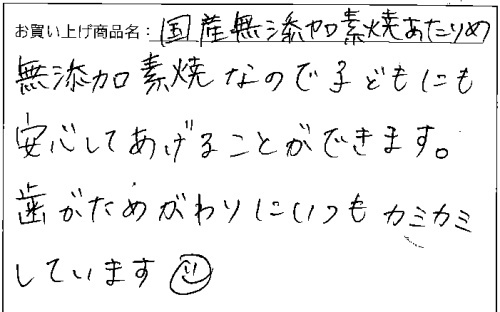 お買い上げ商品名：国産無添加素焼あたりめ
無添加素焼なので子どもにも
安心してあげることができます。
歯がためがわりにいつもカミカミ
しています